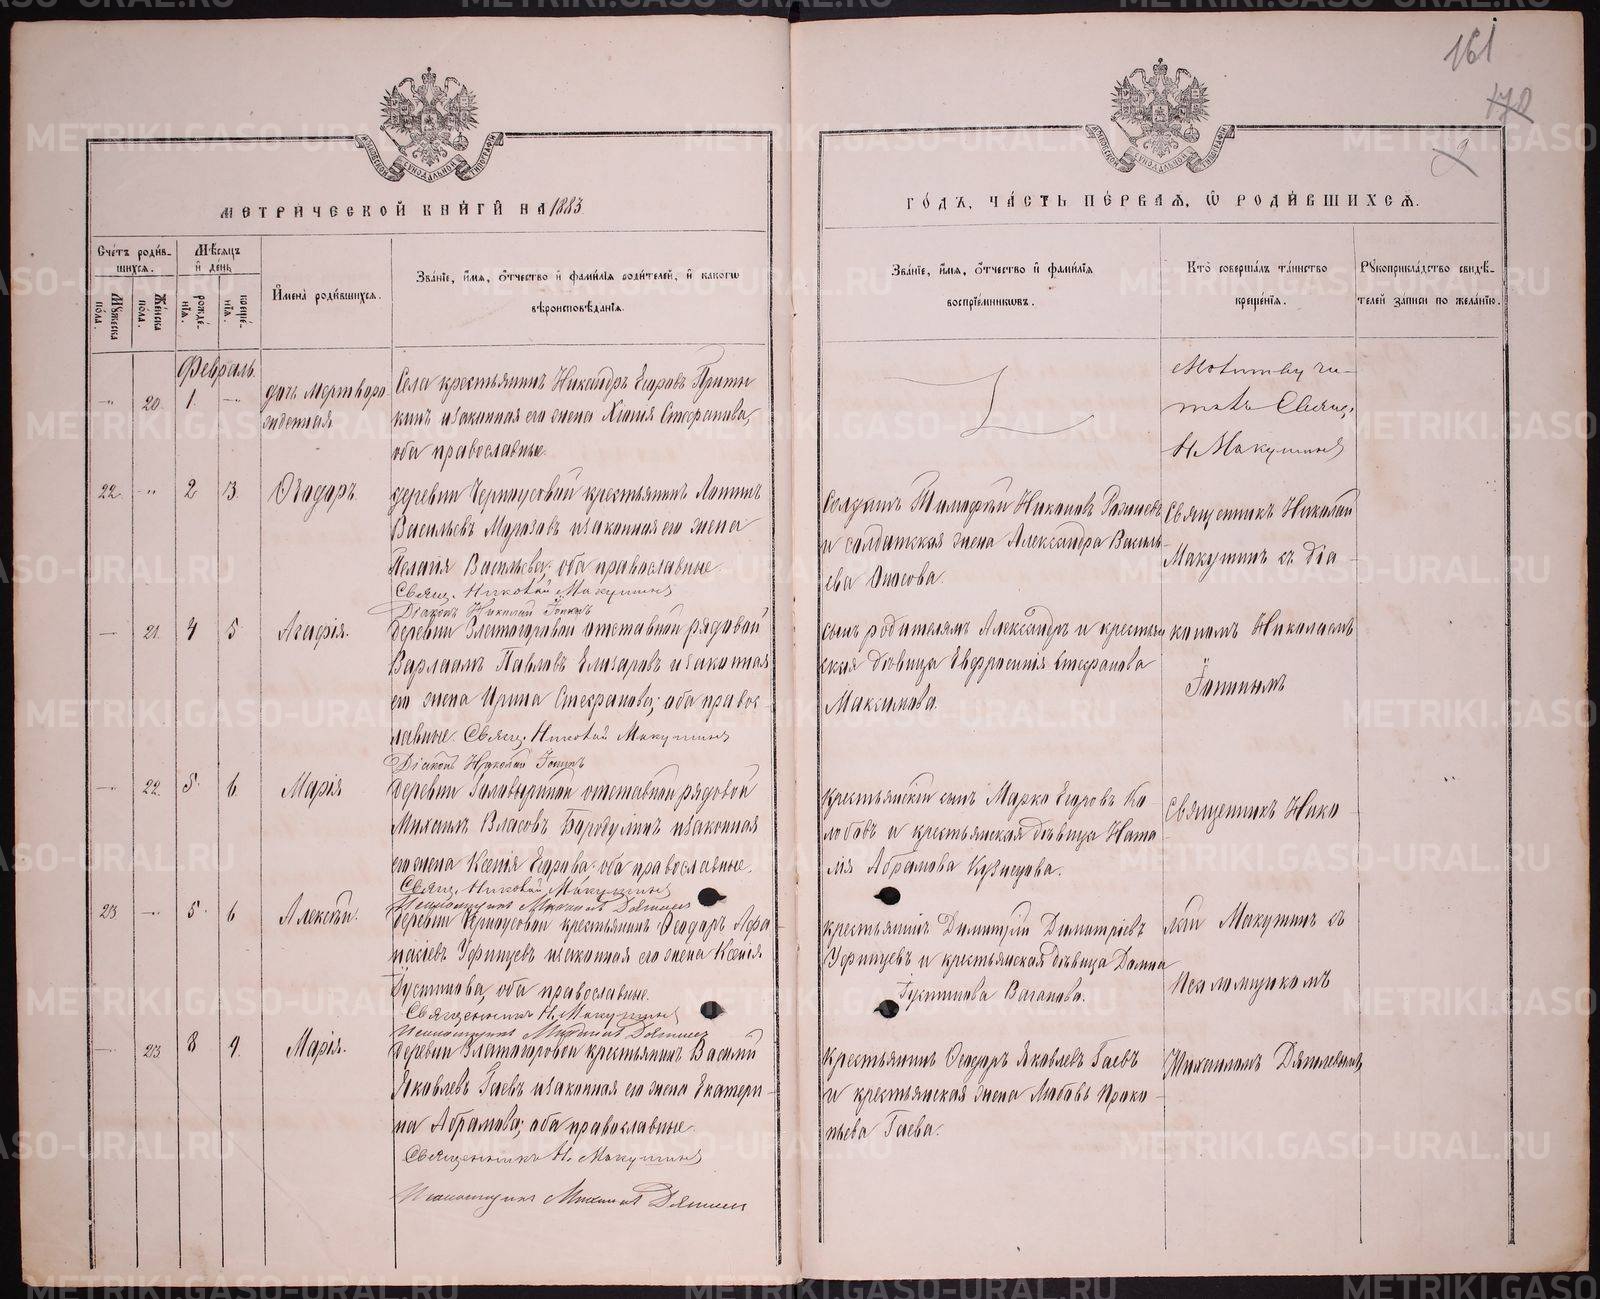 161
172
9
МЕТРИЧЕСКОЙ КНИГИ НА 1883
ГОДЪ, ЧАСТЬ ПЕРВАЯ, Ѡ РОДИВШИХСЯ.
Счетъ родив-
шихся.
Мѣсяцъ
и день
Мужеска пола.
Женска пола.
рожденія.
крещенія.
Имена родившихся.
Званіе, имя, отчество и фамилія родителей, и какогѡ
вѣроисповѣданія.
Званіе, имя, отчество и фамилія
воспріемниковъ.
Кто совершалъ таинство
крещенія.
Рукоприкладство свидѣ-
телей записи по желанію.
Февраль.
20. 1.
дочь мертворо
жденная
Села крестьянинъ Никандръ Егоровъ
и законная его жена Стефанова,
оба православные.
Молитву чи-
талъ Священ.
Н. Макушинъ
22. 2 3. Ѳеодоръ.
деревни Черноусовой крестьянинъ Логинъ
Васильевъ Морозовъ и законная его жена
Пелагія Васильева, оба православные.
Свящ. Николай Макушинъ
Діаконъ Николай
Солдатъ Тимофей Никоновъ
и солдатская жена Александра Василь-
ева
Священникъ Николай
Макушинъ съ діа-
21. 4 5 Агафія.
деревни Златогоровой отставной рядовой
Варлаамъ Павловъ Елизаровъ и законная
его жена Ирина Стефанова, оба правос-
лавные. Свящ. Николай Макушинъ
Діаконъ Николай
сынъ родителямъ Александръ и крестьян
ская дѣвица Евфросинія Стефанова
Максимова.
кономъ Николаемъ
22. 5 6 Марія
деревни Головыриной отставной рядовой
Михаилъ Власовъ Бородулинъ и законная
его жена Ксенія Егорова, оба православные.
Свящ. Николай Макушинъ
Псаломщикъ Михаилъ
крестьянскій сынъ Марко Егоровъ Ко-
лобовъ и крестьянская дѣвица Ната-
лія Абрамова Кузнецова.
Священникъ Нико-
23 5 6 Алексѣй.
деревни Черноусовой крестьянинъ Ѳеодоръ Афа
насіевъ Уфинцевъ и законная его жена Ксенія
Іустинова, оба православные.
Священникъ Н. Макушинъ
Псаломщикъ Михаилъ
крестьянинъ Димитрій Димитріевъ
Уфинцевъ и крестьянская дѣвица Домна
Іустинова Ваганова.
лай Макушинъ съ
Псаломщикомъ
23 8 9. Марія.
деревни Златогоровой крестьянинъ Василій
Яковлевъ Гаевъ и законная его жена Екатери-
на Абрамова, оба православные.
Священникъ Н. Макушинъ
Псаломщикъ Михаилъ
Крестьянинъ Ѳеодоръ Яковлевъ Гаевъ
и крестьянская жена Любовь Проко-
пьева Гаева.
Михаиломъ
METRIKI.GASO-URAL.RU